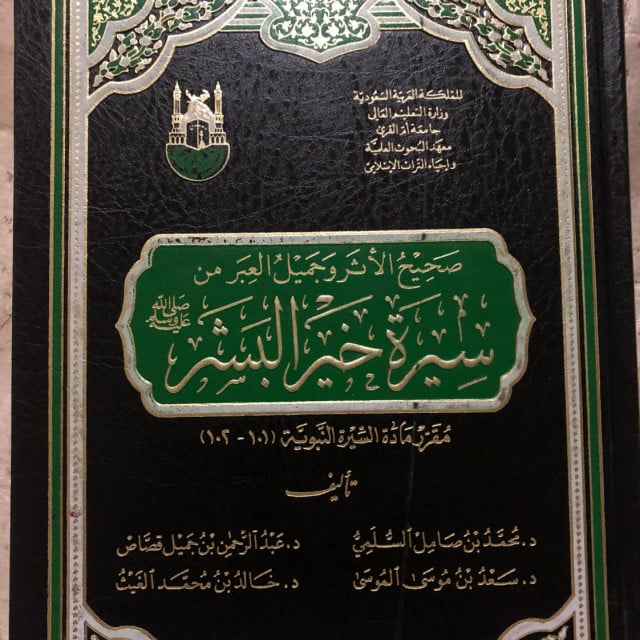 المملكة العربية السعودية
وزارة التعليم العالي
جامعة أم القرى
معهد البحوث العلمية
وإحياء التراث الإسلامي
صَحِيْحُ الأَثَرِ وَجَمِيْلُ العِبَرِ مِنْ
سِيْرَةِ خَيْرِ البَشَرِ ﷺ
مُقَرَّرُ مَادَّةِ السِّيْرَةِ النَّبَوِيَّةِ (١٠١ - ١٠٢)
تأليف
د. مُحَمَّدُ بْنُ صَامِلِ السُّلَمِيُّ د. عَبْدُ الرَّحْمٰنِ بْنُ جَمِيْلٍ قَصَّاص
د. سَعْدُ بْنُ مُوسَى المُوسَى د. خَالِدُ بْنُ مُحَمَّدِ الغَيْث